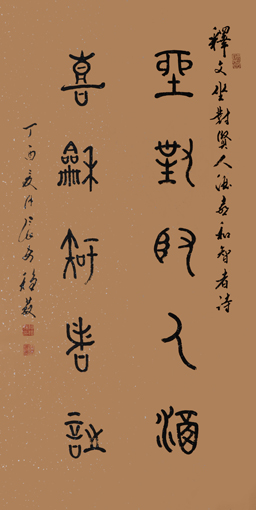 釋文坐對賢人酒喜和智者詩
坐對臤人酒
喜龢智者詩
丁酉夏